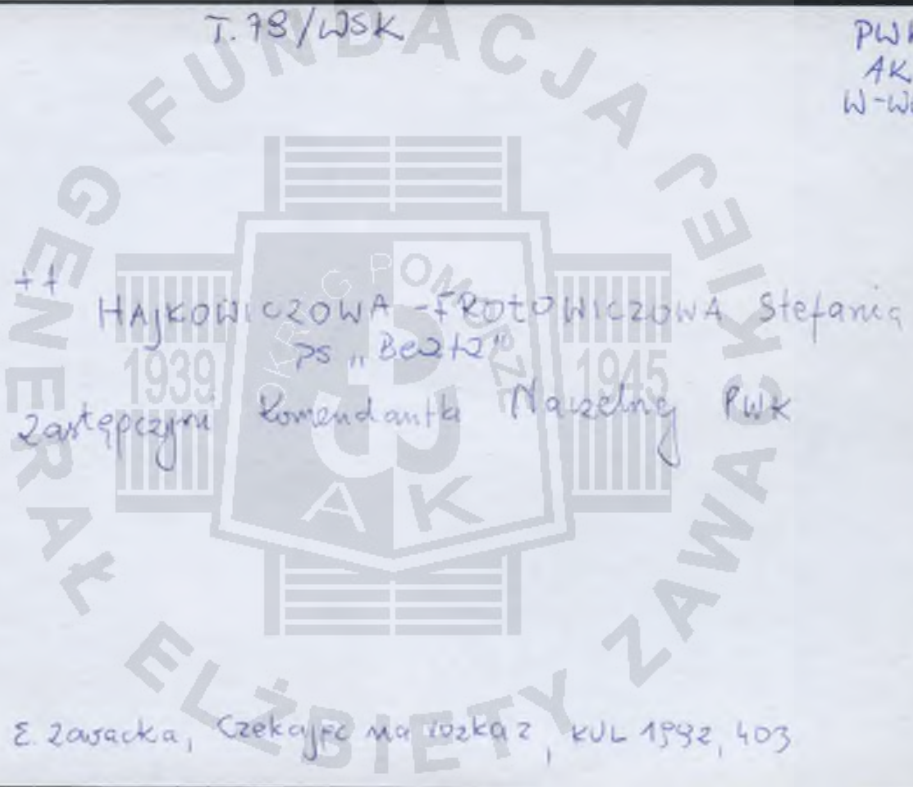 T. 79/WSK
PWK
AK
W-W
++
HAJKOWICZOWA - FROŁOWICZOWA Stefania
ps „Beata"
zastępczyni Komendantki Naczelnej PWK
E. Zawacka, Czekając na rozkaz, KUL 1992, 403
FUNDACJA GENERAŁ ELŻBIETY ZAWACKIEJ
OKRĘG POMORZE
1939
1945
AK